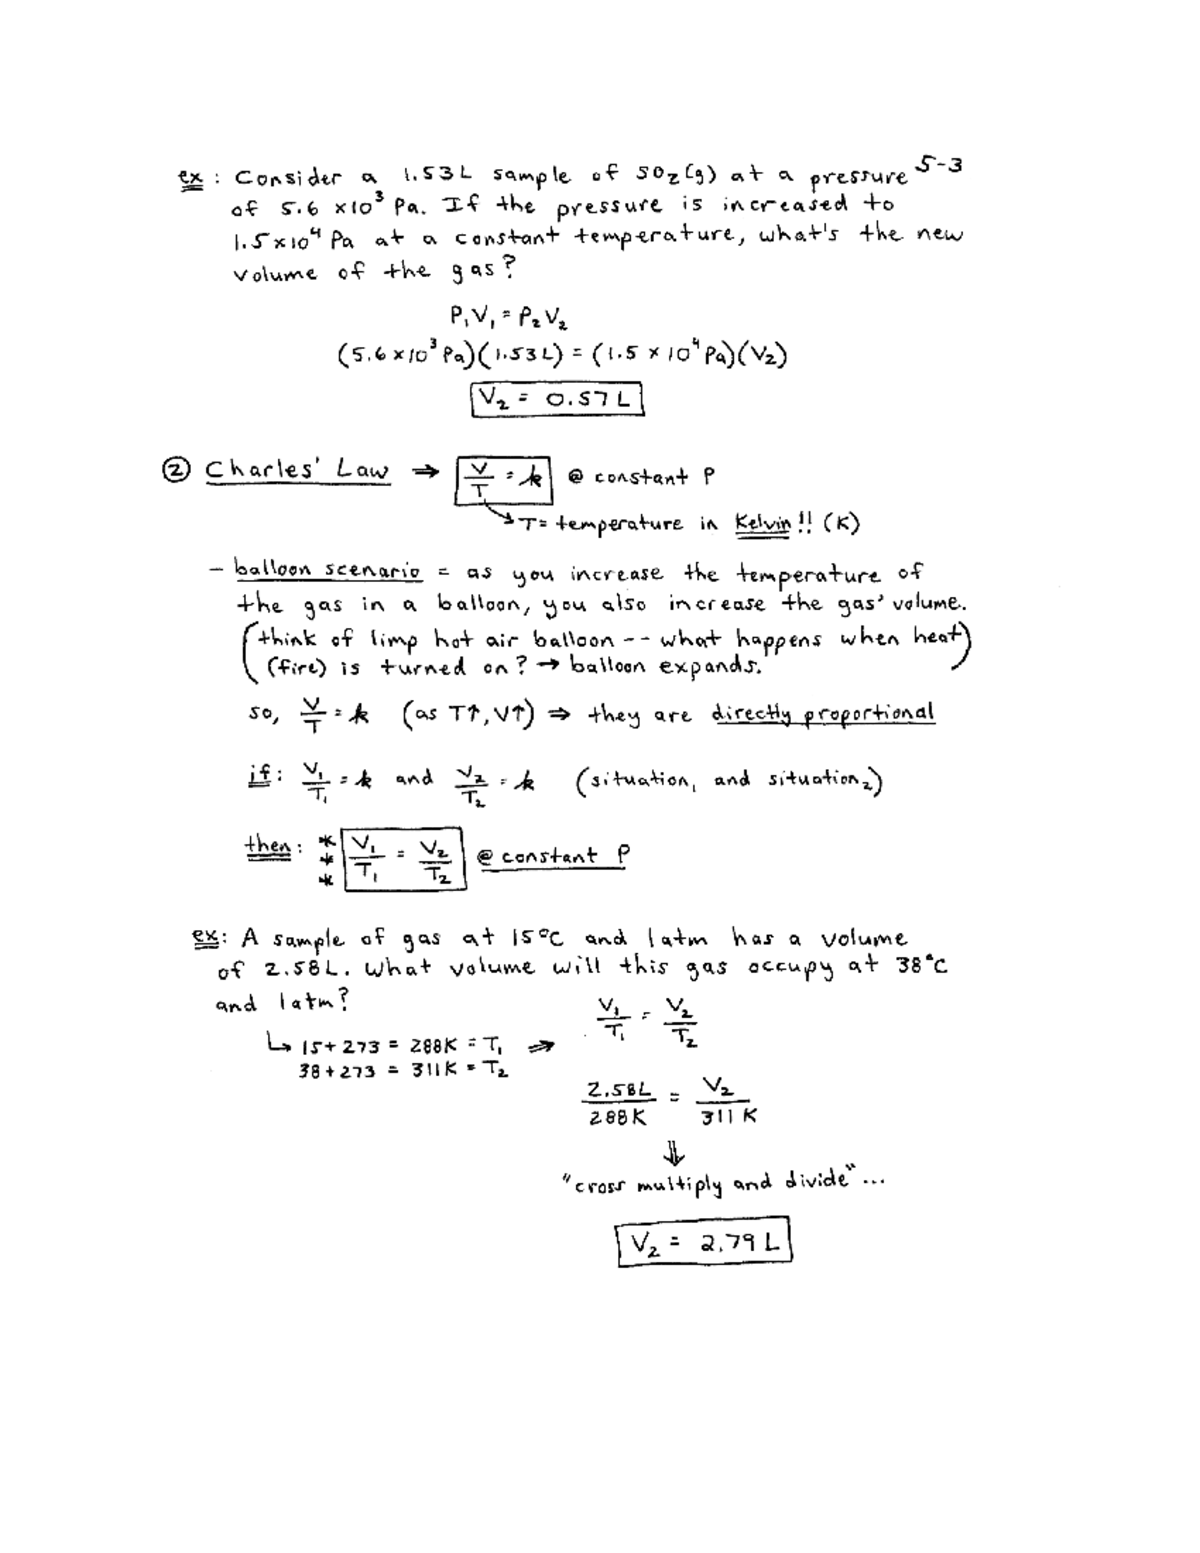 5-3
ex: Consider a 1.53L sample of SO₂(g) at a pressure
of 5.6 x10³ Pa. If the pressure is increased to
1.5x10⁴ Pa at a constant temperature, what's the new
volume of the gas?
P₁V₁ = P₂V₂
(5.6 x 10³ Pa)(1.53L) = (1.5 x 10⁴ Pa)(V₂)
V₂ = 0.57 L
② Charles' Law ⇒ V/T = k @ constant P
T= temperature in Kelvin!! (K)
- balloon scenario = as you increase the temperature of
the gas in a balloon, you also increase the gas' volume.
(think of limp hot air balloon -- what happens when heat
(fire) is turned on? → balloon expands.)
so, V/T = k (as T↑, V↑) ⇒ they are directly proportional
if: V₁/T₁ = k and V₂/T₂ = k (situation₁ and situation₂)
then: *** V₁/T₁ = V₂/T₂ @ constant P
ex: A sample of gas at 15°C and 1atm has a volume
of 2.58L. What volume will this gas occupy at 38°C
and 1atm?
↳ 15+273 = 288K = T₁ ⇒ V₁/T₁ = V₂/T₂
38+273 = 311K = T₂
2.58L/288K = V₂/311K
⇓
"cross multiply and divide"...
V₂ = 2.79 L